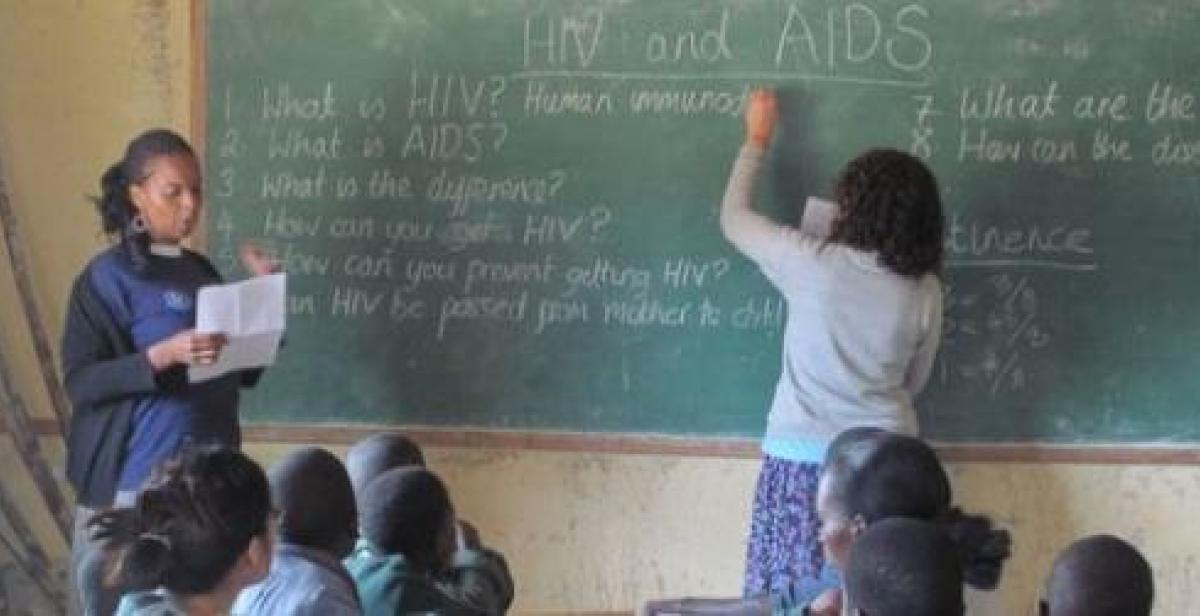 HIV and AIDS
1 What is HIV? Human immunod
2. What is AIDS?
3 What is the difference?
4 How can you get HIV?
How can you prevent getting HIV?
an HIV be passed from mother to chil
7 What are the
8 How can the dis
tinence